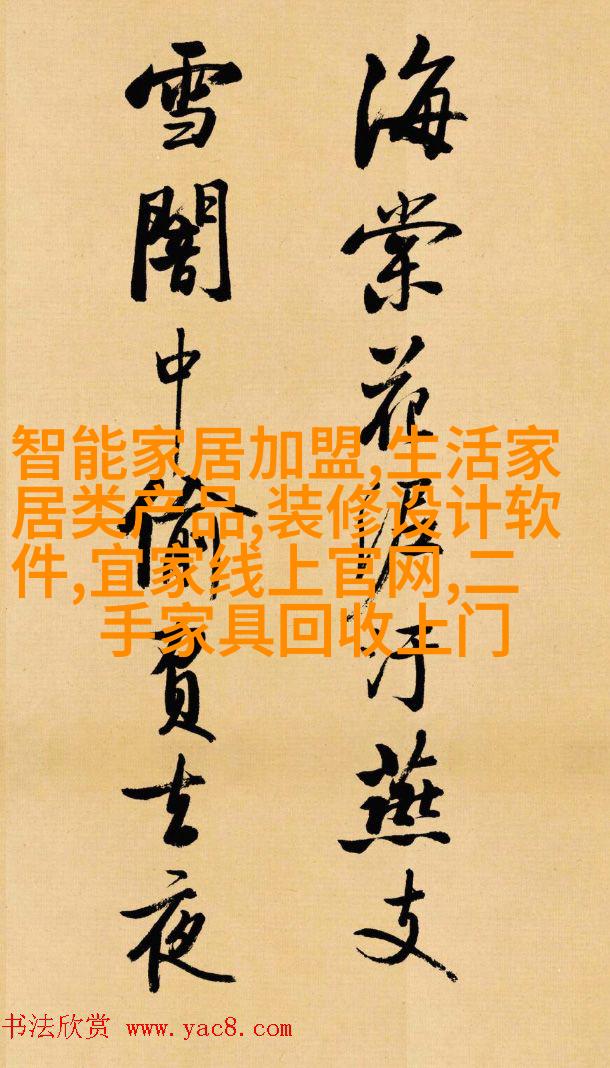 海棠花泥污燕支
雪闇中偷負去夜
智能家居加盟,生活家
居类产品,装修设计软
件,宜家线上官网,二
手家具回收上门
书法欣赏 www.yac8.com